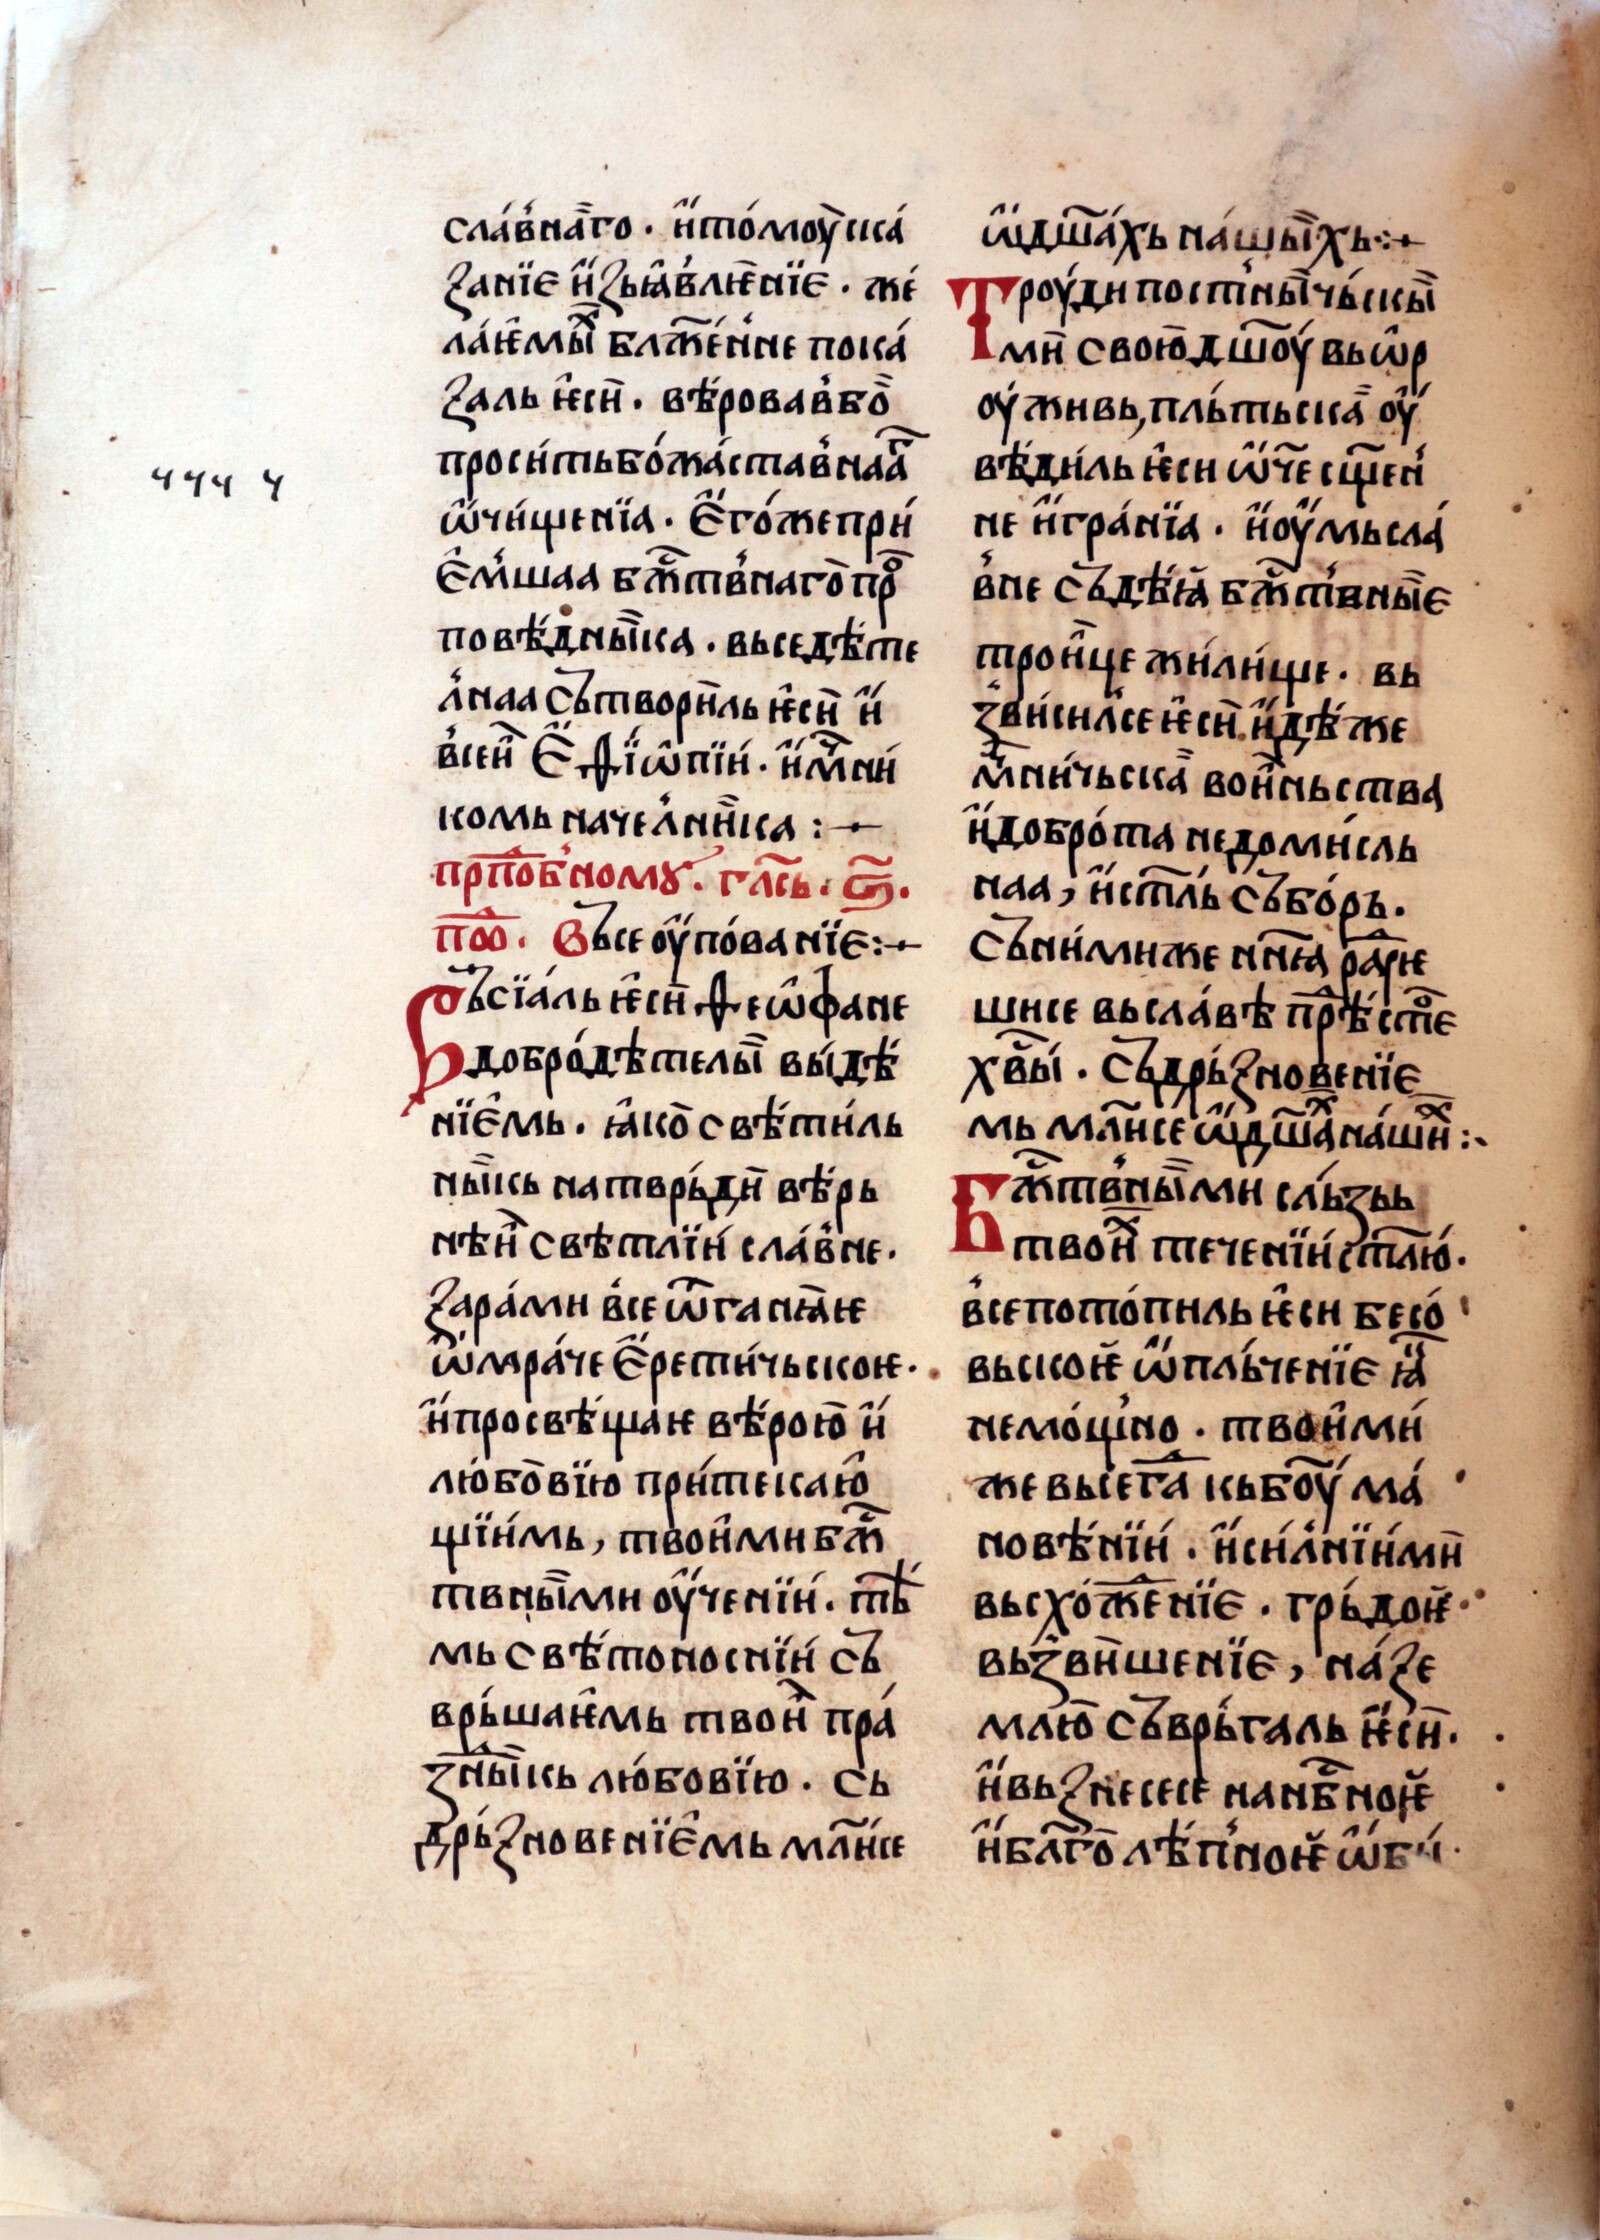 ч ч ч ч
сла́внаго · и҆то́моу ска́
заніе и҆зьꙗвлѥ́ніѥ · же́
ла́ѥмы̑х бл҃же́нне пока́
заль ѥ҆си̑ · вѣ́ровав бо̑
проси́ть бо́жаставнаа҃
ѡ҆чи́щенїа · Є҆го́же прїи́
є҆мшаа бж҃твнаго про
повѣ́дныка · вьседѣ́те
лнаа сътвори̑ль ѥ҆си̑ и҆
всеи̑ Є҆ѳїѡпїи́ · и҆м҃ни́
комь начелни̑ка :–
прпⷣобному · гла҃сь · ѕ҃ ·
пⷣоб · Въсе оу҆пова́нїє :–
Въсїа́ль ѥ҆си̑ ѳеѡ҆фане
добродѣ́телы вы́дѣ́
нїє҆мь · ꙗ҆ко̑ свѣти́ль
ны̑кь на твры́ди̑ вѣ́рь
нѣи̑ свѣтлїи́ сла́вне ·
зара́ми все ѿганꙗ̑ѥ
ѡ҆мра́че Є҆рети́чьскоѥ ·
и҆просвѣ́щаѥ вѣ́рою̑ и҆
лю́бо̑вїю при́текаю̑
щїи́мь, твои̑ми бж҃
твны̑ми оу҆че́нїи́ · тѣ́
мь свѣ́тоноснїи́ съ
вры́шаѥ҆мь твои̑ пра́
зны̑кь лю́бовїю · сь
дры́зновенїє҆мь мл҃и́се
ѡ҆дш҃а́хь на́шы̑хь :–
Троу́ди постны́чьскы̑
ми̑ свою̑ дш҃оу́ вьѡ҆р
оу́живь, пль́тьска̑ оу҆
вѣ́ди́ль ѥ҆си ѡ҆ч҃е сщ҃ен
не и҆гра́нїа · и҆оу́мь сла́
вне съдѣ́ꙗ бж҃твны̑є
трои̑це жи́ли́ще · вь
зви́силсе ѥ҆си̑ и҆дѣ́же
м҃ни́чьска̑ вои̑ньства
и҆добро́та недоми́сль
наа, и҆ст҃ль събо́рь ·
Съними же нн҃ꙗ ра́ѥ
шисе вьсла́вѣ прѣ́стⷪ҇є
хв҃ы́ · Съдры́зновенїє
мь мл҃и́се ѡ҆дш҃а́х на́ши̑х :·
Бж҃твны̑ми слы́зьь
твои̑х тече́нїи́ ст҃лю́ ·
все пото́пиль ѥ҆си бесо́
вьскоѥ҆ ѡ҆плы́ченїє ꙗ҆
немо́щно · твои̑ми́
же вьсега̑ кьбо҃у́ ма́
новѣ́нїи́ · и҆си́лнїи́ми̑
вьсхо́же̑нїє · гры́доѥ҆
вьзви̑шенїє, на́зе
млю̑ съвры́галь ѥ҆си̑ ·
и҆вьзнесесе нанб҃ноѥ҆
и҆бл҃го̑лѣ́пноѥ҆